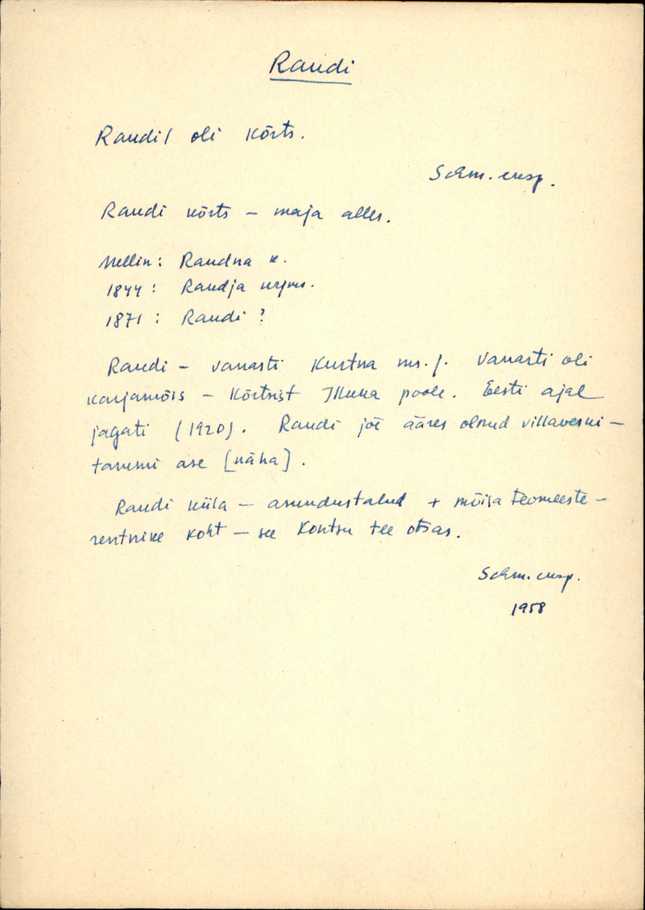 Raudi
Raudil oli kõrts.
Schm. ensp.
Raudi kõrts – maja alles.
Mellin: Raudna k.
1844: Raudja
1871: Raudi ?
Raudi – vanasti Kurtna ms. j. Vanasti oli
karjamõis – kõrtsist Illuka poole. Eesti ajal
jagati (1920). Raudi jõe ääres olnud villaveski –
tammi ase [näha].
Raudi küla – asundustalud + mõisa teomeeste-
rentnike koht – see Kontsu tee otsas.
Schm. ensp.
1958